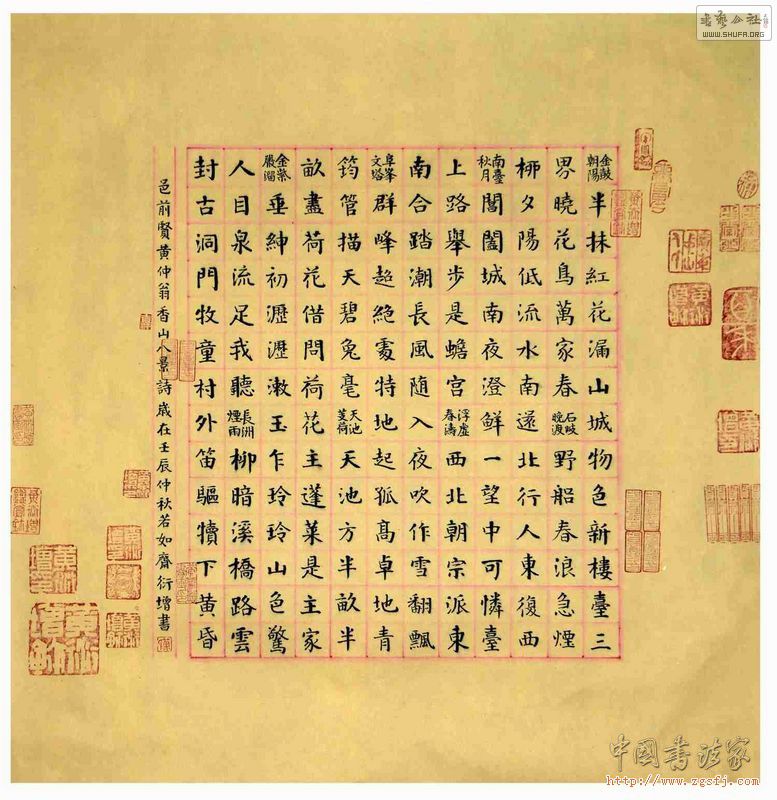 書藝公社
WWW.SHUFA.ORG
金鼓朝陽半抹紅花漏山城物色新樓臺三
界曉花鳥萬家春石岐晚渡野船春浪急煙
柳夕陽低流水南還北行人東復西
南臺秋月閶闔城南夜澄鮮一望中可憐臺
上路舉步是蟾宮浮虛春濤西北朝宗派東
南合踏潮長風随入夜吹作雪翻飄
阜峯文塔群峰超絶處特地起孤髙卓地青
筠管描天碧兔毫天池芰荷天池方半畝半
畝盡荷花借問荷花主蓬萊是主家
金紫巖溜垂紳初瀝瀝漱玉乍玲玲山色驚
人目泉流足我聽長洲煙雨柳暗溪橋路雲
封古洞門牧童村外笛驅犢下黄昏
邑前賢黄仲翁香山八景詩歲在壬辰仲秋若如齋衍增書
中國書法家
http://www.zgsfj.com